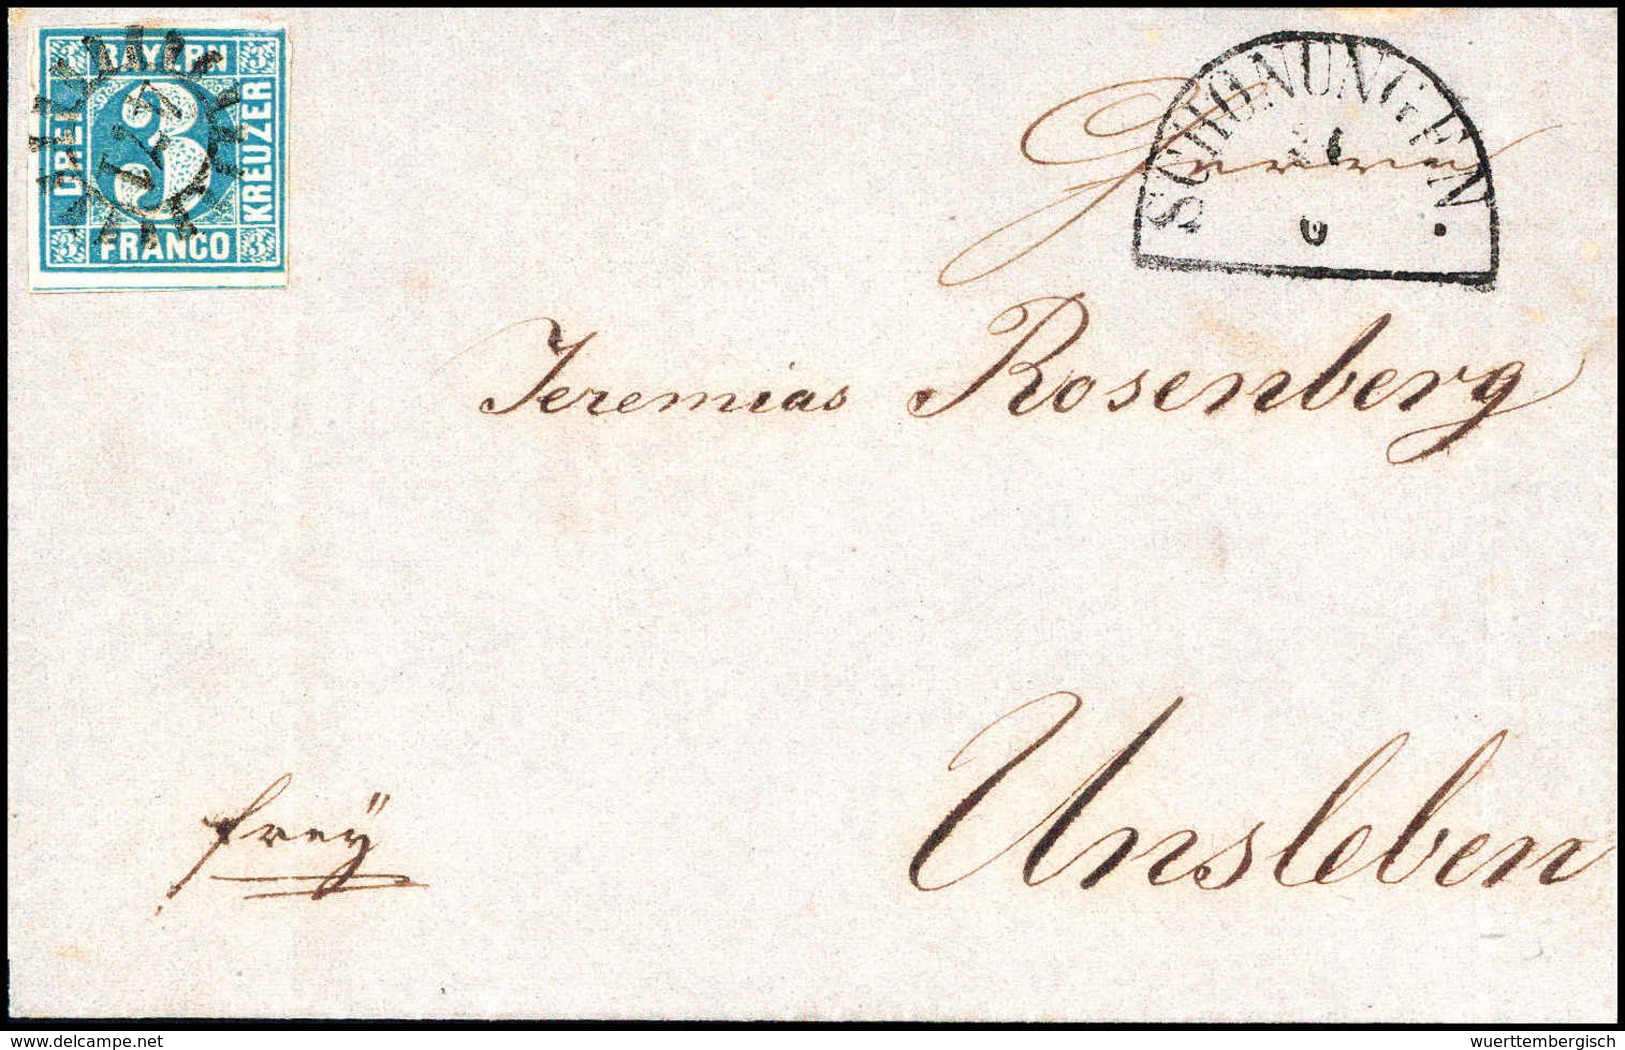 BAYERN
DREI
3
KREUZER
FRANCO
SCHONUNGEN
Jeremias Rosenberg
frey
Unsleben
www.delcampe.net
wuerttembergisch